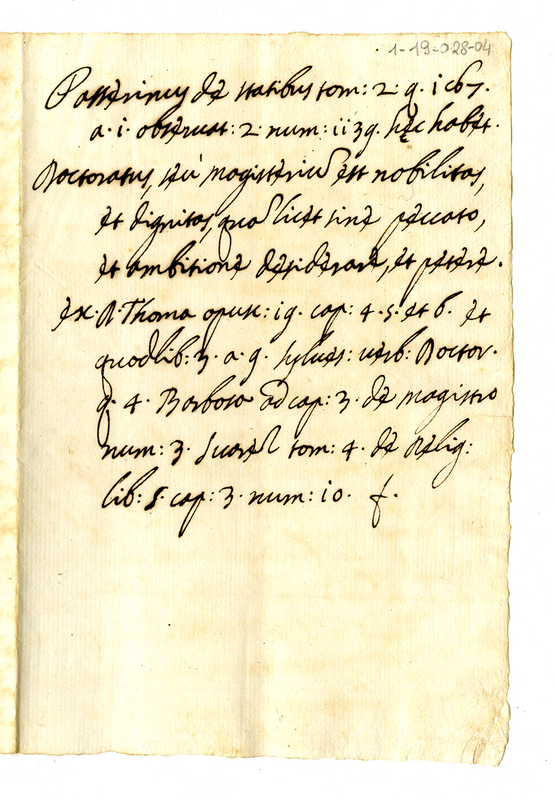 1-19-028-04
Passerinus de statibus tom: 2. q. 187.
a. 1. observat: 2. num: 1139. hęc habet.
Doctoratus, seù magisterium est nobilitas,
et dignitas, qua licet sine peccato,
et ambitione desiderare, et petere.
ex. D. Thoma opusc: 19. cap: 4. 5. et 6. et
quodlib: 3. a. 9. Sylves: verb: Doctor.
q. 4. Barbosa ad cap: 3. de magistro
num: 3. Suarez tom: 4. de Relig:
lib: 5. cap: 3. num: 10.